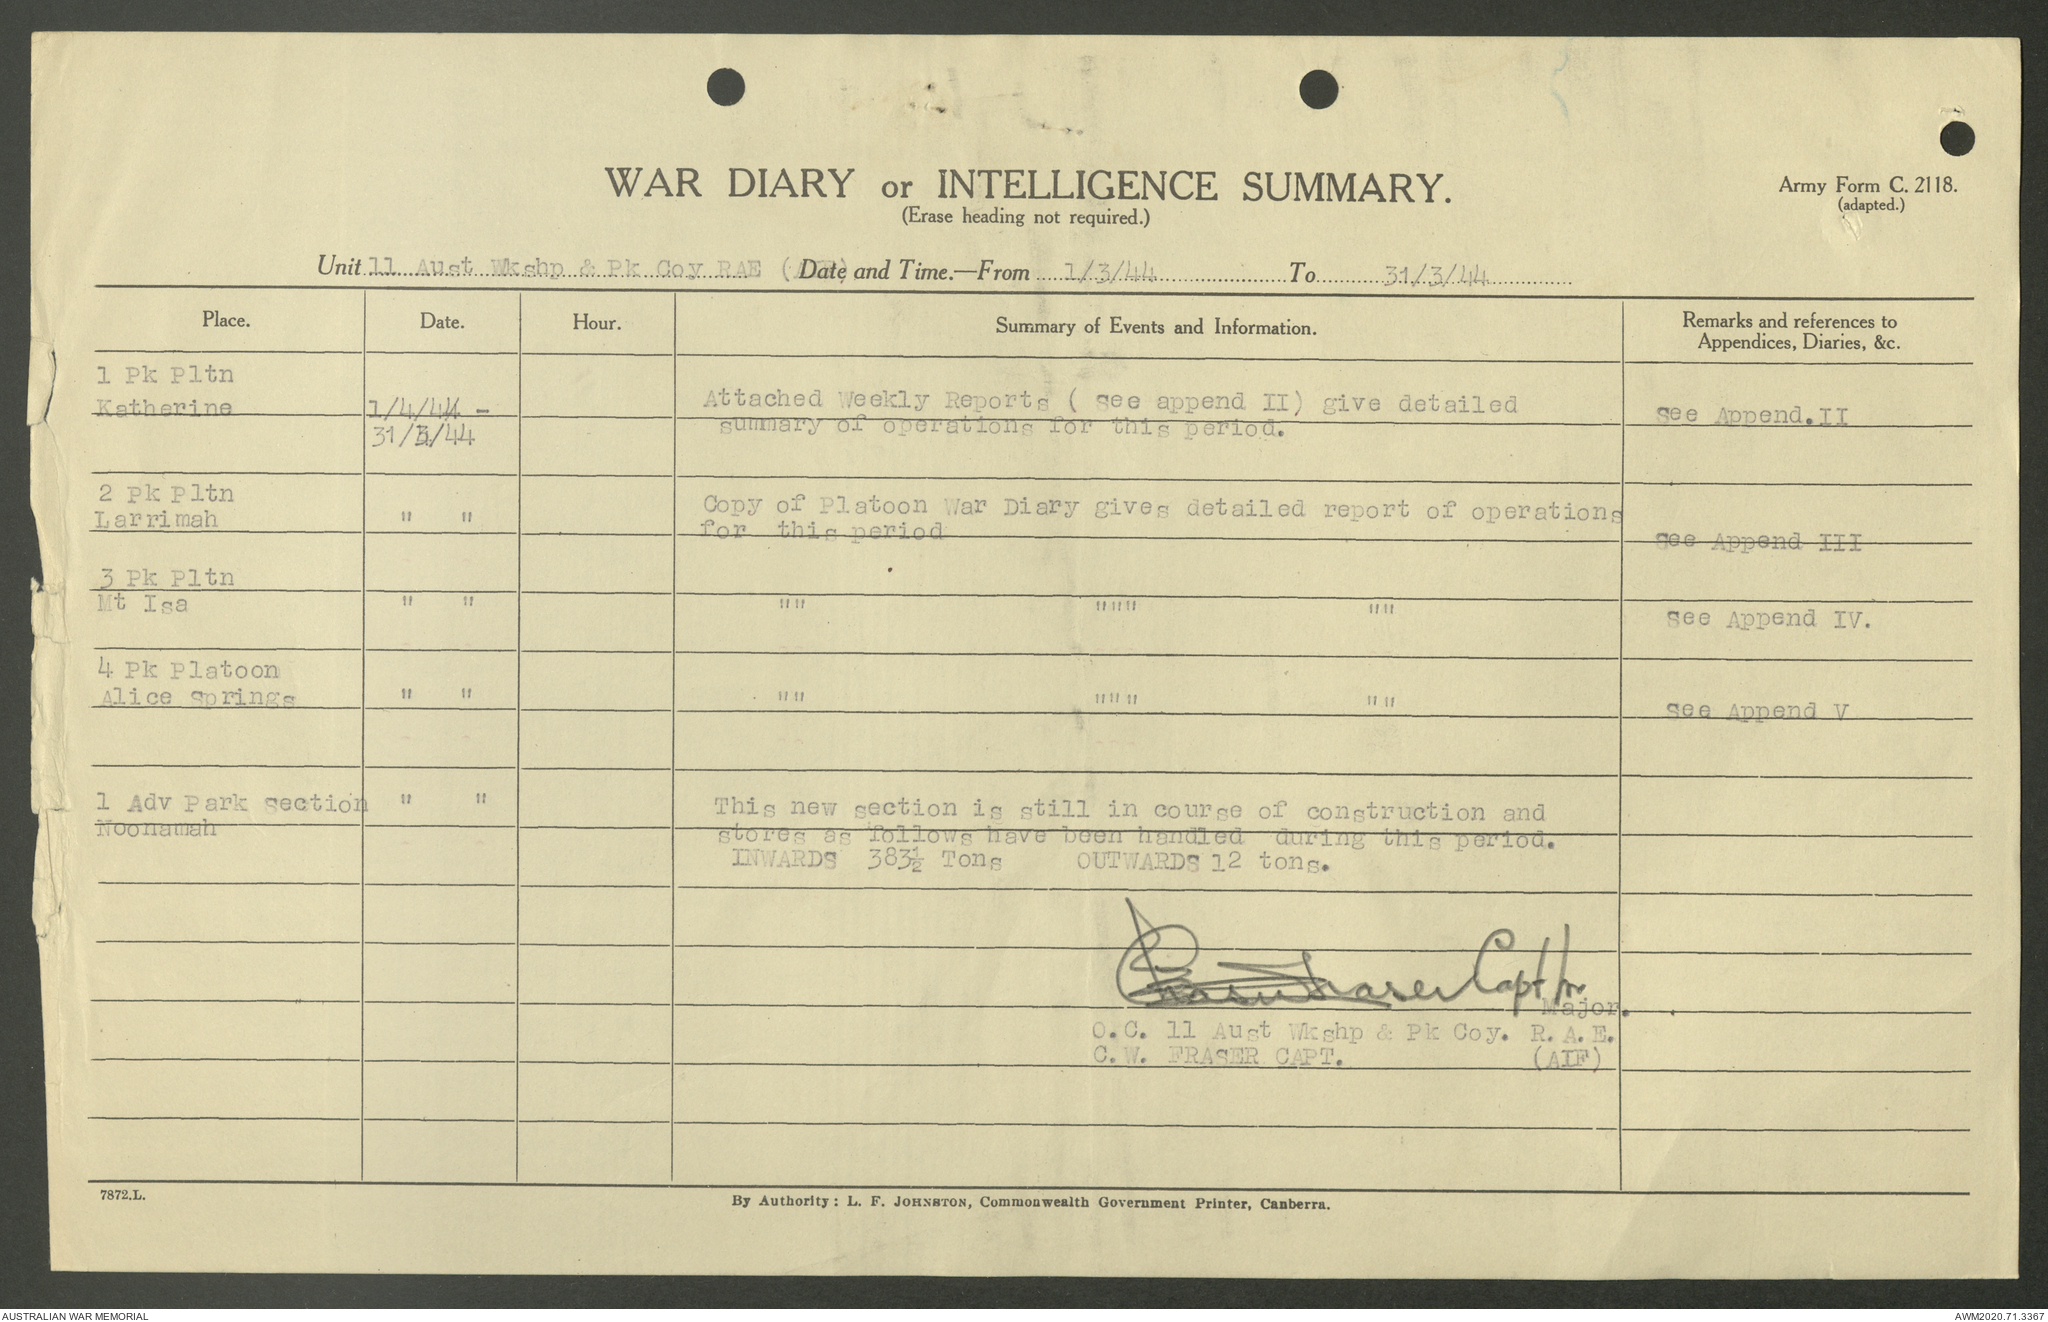 WAR DIARY or INTELLIGENCE SUMMARY.
(Erase heading not required.)
Army Form C. 2118.
(adapted.)
Unit 11 Aust Wkshp & Pk Coy RAE (AIF) Date and Time.—From 1/3/44 To 31/3/44
Place. Date. Hour. Summary of Events and Information. Remarks and references to
Appendices, Diaries, &c.
1 Pk Pltn
Katherine 1/4/44 - Attached Weekly Reports ( see append II) give detailed See Append.II
31/3/44 summary of operations for this period.
2 Pk Pltn
Larrimah " " Copy of Platoon War Diary gives detailed report of operations
for this period See Append III
3 Pk Pltn
Mt Isa " " "" """" "" See Append IV.
4 Pk Platoon
Alice Springs " " "" """" "" See Append V
1 Adv Park Section " " This new section is still in course of construction and
Noonamah stores as follows have been handled during this period.
INWARDS 383½ Tons OUTWARDS 12 tons.
Fraser Capt for
Major.
O.C. 11 Aust Wkshp & Pk Coy. R.A.E.
C.W. FRASER CAPT. (AIF)
7872.L.
By Authority: L. F. JOHNSTON, Commonwealth Government Printer, Canberra.
AUSTRALIAN WAR MEMORIAL
AWM2020.71.3367